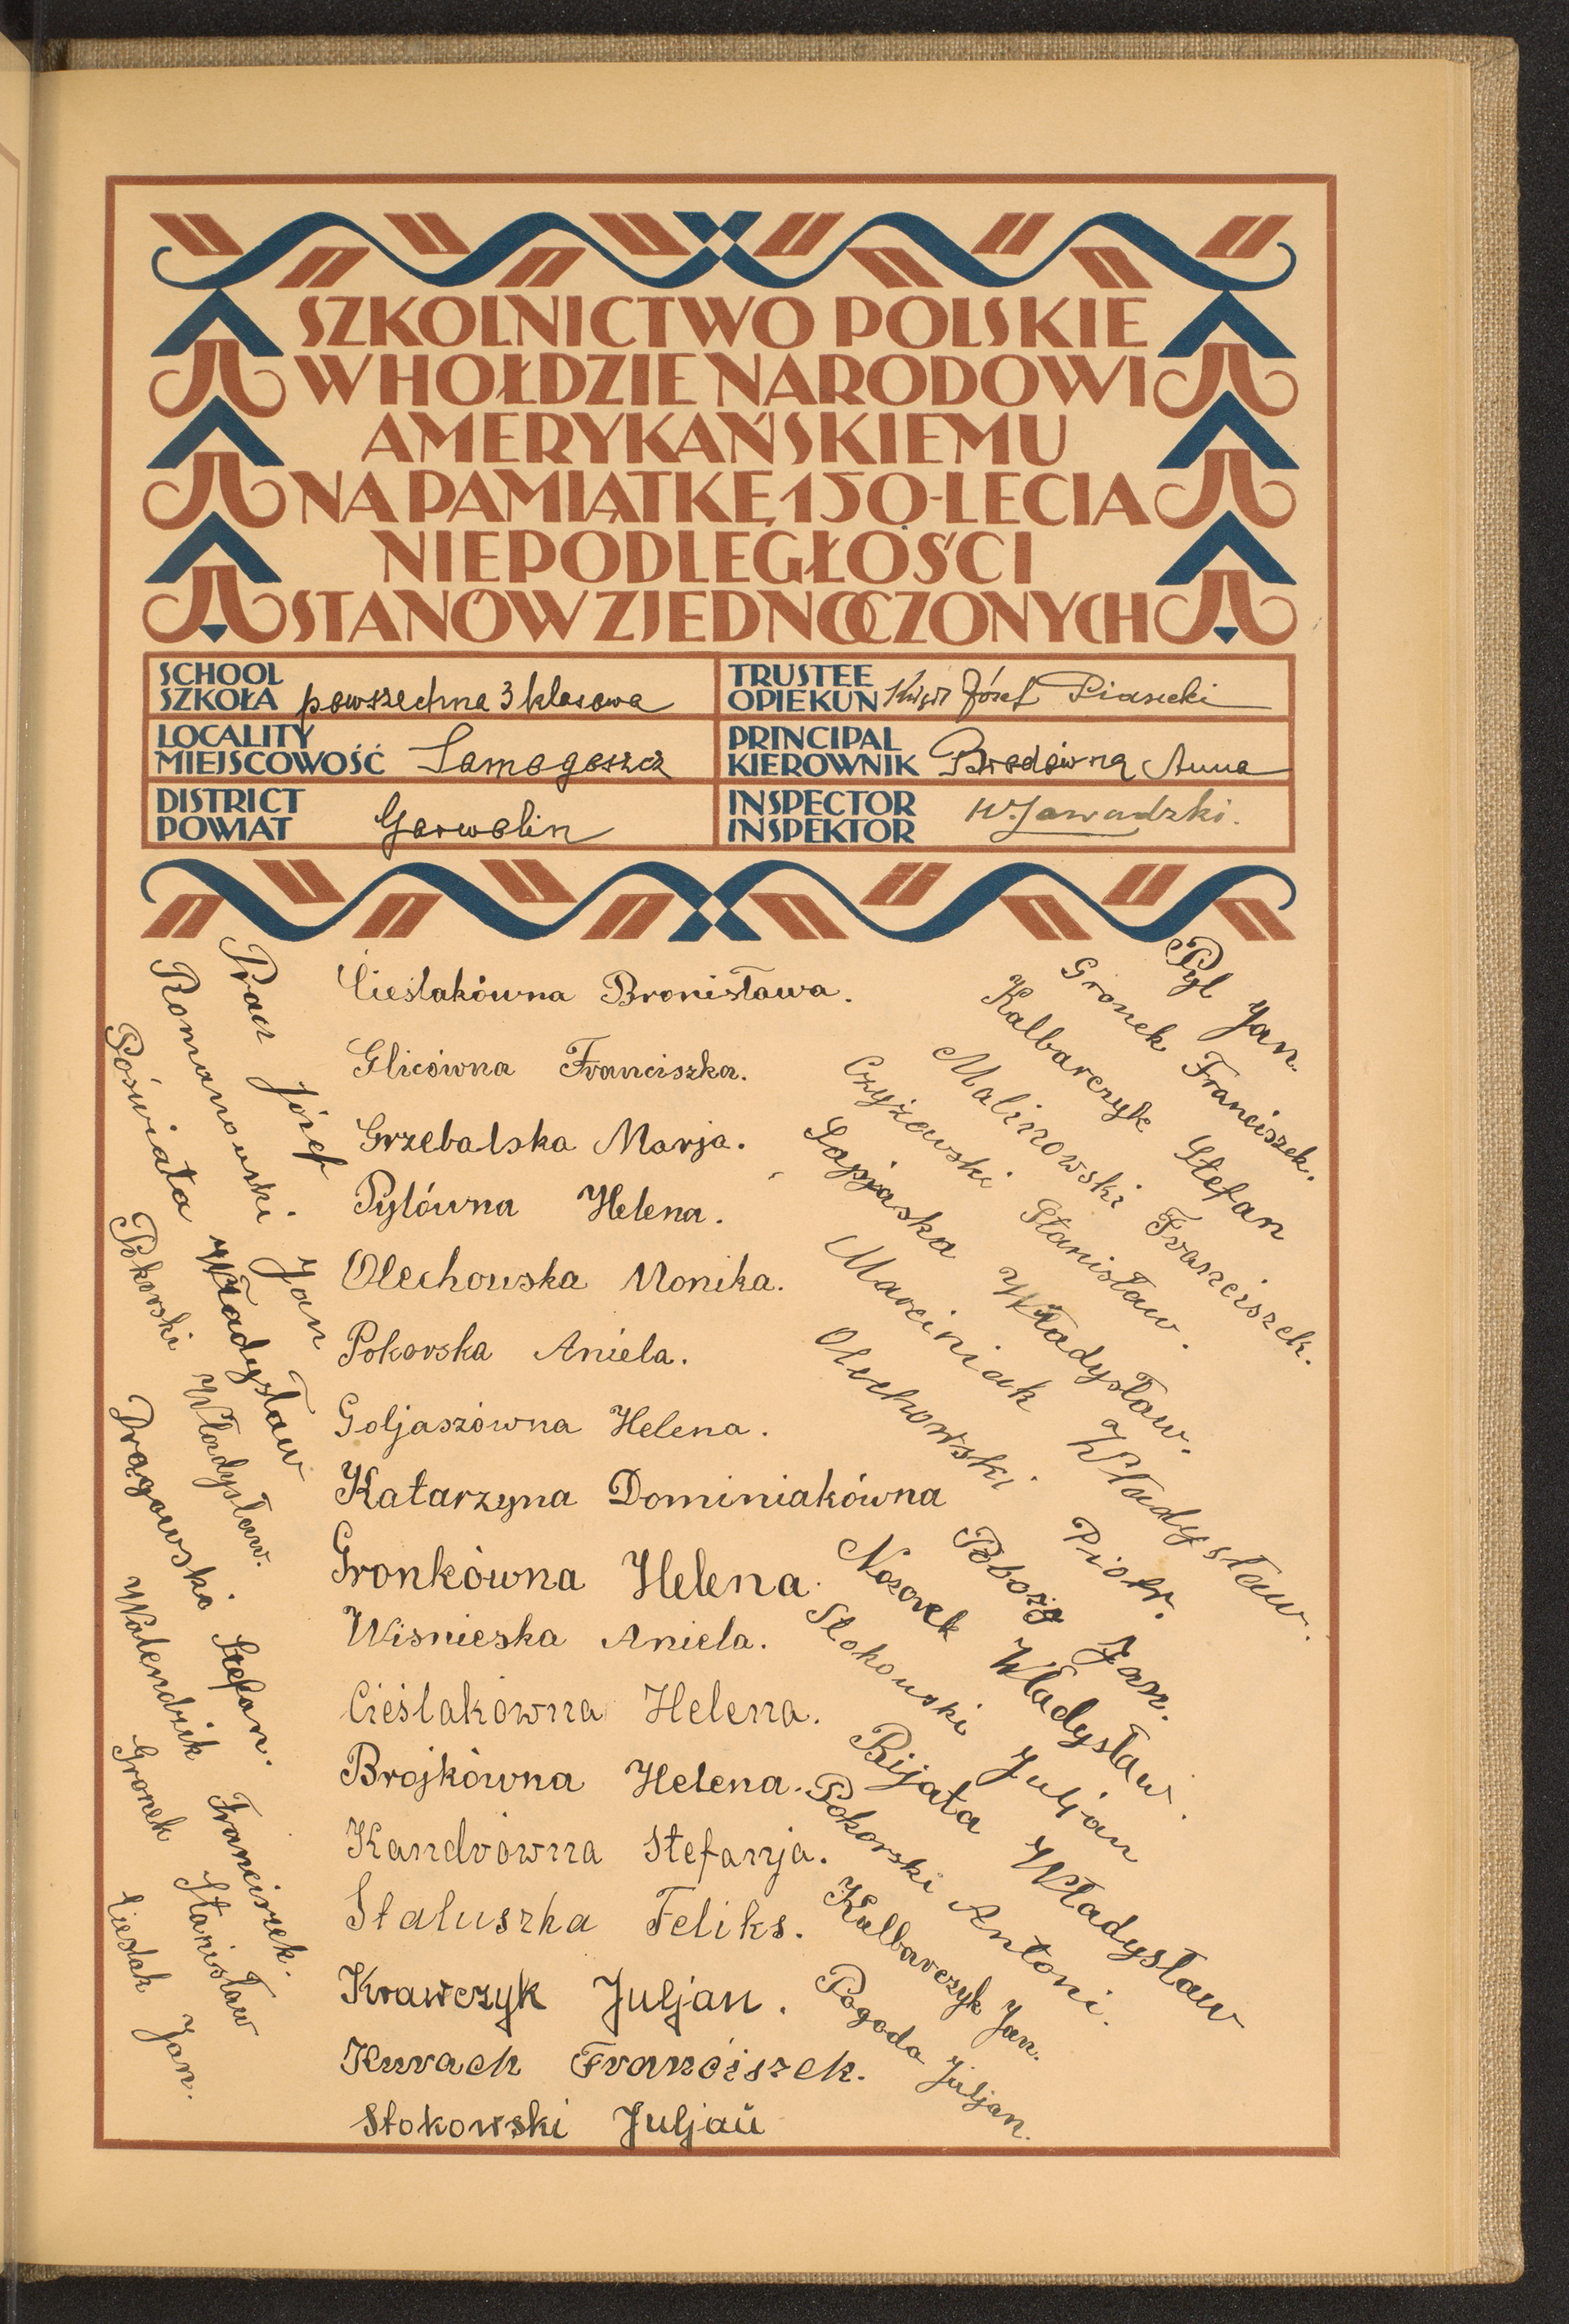 SZKOLNICTWO POLSKIE
W HOŁDZIE NARODOWI
AMERYKAŃSKIEMU
NA PAMIĄTKĘ 150-LECIA
NIEPODLEGŁOŚCI
STANÓW ZJEDNOCZONYCH
SCHOOL
SZKOŁA powszechna 3 klasowa
TRUSTEE
OPIEKUN Ksiądz Józef Piasecki
LOCALITY
MIEJSCOWOŚĆ Samogoszcz
PRINCIPAL
KIEROWNIK Brodówna Anna
DISTRICT
POWIAT Garwolin
INSPECTOR
INSPEKTOR W. Zawadzki.
Pracz Józef
Romanowski Jan
Poświata Władysław
Pokorski Władysław.
Drągowski Stefan.
Walendzik Franciszek.
Gronek Stanisław
Cieślak Jan.
Cieślakówna Bronisława.
Glicówna Franciszka.
Grzebalska Marja.
Pylówna Helena.
Olechowska Monika.
Pokorska Aniela.
Goljaszówna Helena.
Katarzyna Dominiakówna
Gronkówna Helena.
Wisnieska Aniela.
Cieślakówna Helena.
Brojkówna Helena.
Kandrówna Stefanja.
Staluszka Feliks.
Krawczyk Juljan.
Kurach Franciszek.
Stokowski Juljan
Pyl Jan.
Gronek Franciszek.
Kalbarczyk Stefan
Malinowski Franciszek.
Czyżewski Stanisław.
Sopjaska Władysław.
Marciniak Władysław.
Olechowski Piotr.
Pobozy Jan.
Nozorek Władysław.
Stokowski Juljan
Bijata Władysław
Pokorski Antoni.
Kalbarczyk Jan.
Pogoda Juljan.